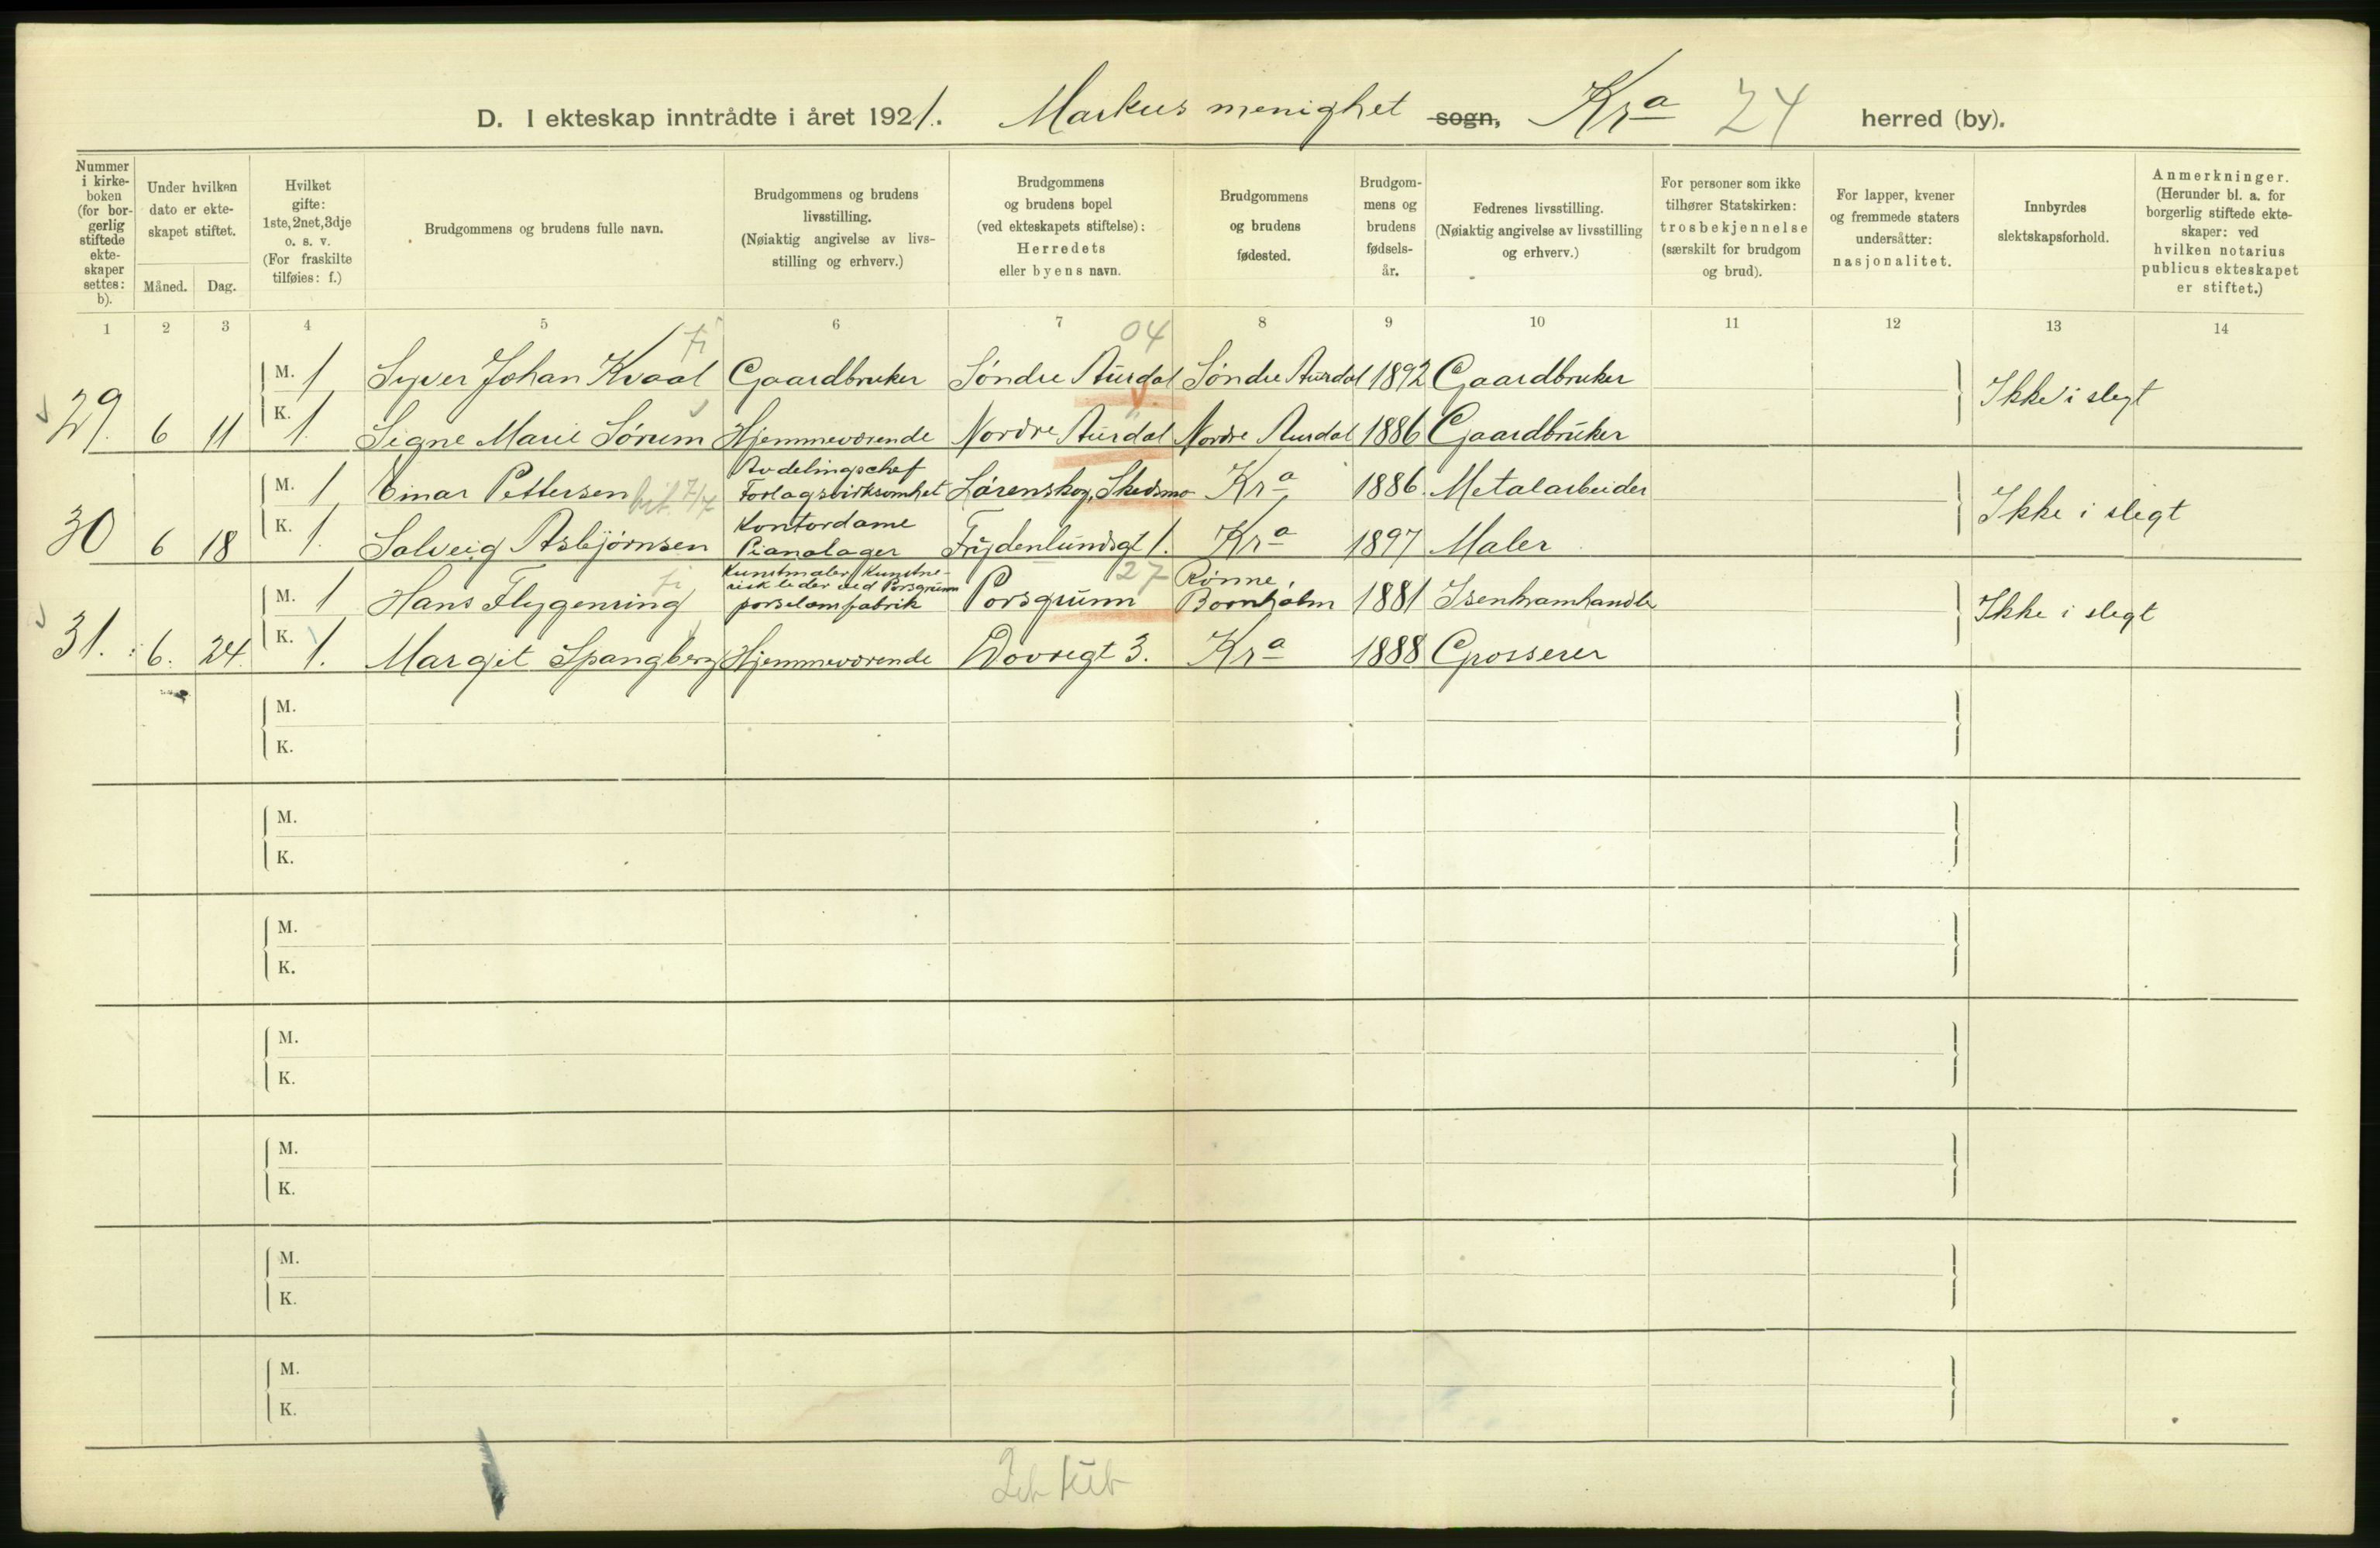 D. I ekteskap inntrådte i året 1921. Markus menighet sogn, Kra 24 herred (by).
Nummer i kirke-boken (for bor-gerlig stiftede ekte-skaper settes: b).
Under hvilken dato er ekte-skapet stiftet.
Måned. Dag.
Hvilket gifte: 1ste, 2net, 3dje o. s. v. (For fraskilte tilføies: f.)
Brudgommens og brudens fulle navn.
Brudgommens og brudens livsstilling. (Nøiaktig angivelse av livs-stilling og erhverv.)
Brudgommens og brudens bopel (ved ekteskapets stiftelse): Herredets eller byens navn.
Brudgommens og brudens fødested.
Brudgom-mens og brudens fødsels-år.
Fedrenes livsstilling. (Nøiaktig angivelse av livsstilling og erhverv.)
For personer som ikke tilhører Statskirken: trosbekjennelse (særskilt for brudgom og brud).
For lapper, kvener og fremmede staters undersåtter: nasjonalitet.
Innbyrdes slektskapsforhold.
Anmerkninger. (Herunder bl. a. for borgerlig stiftede ekte-skaper: ved hvilken notarius publicus ekteskapet er stiftet.)
1 2 3 4 5 6 7 8 9 10 11 12 13 14
04
M. 1 Syver Johan Kvaal fi Gaardbruker Søndre Aurdal Søndre Aurdal 1892 Gaardbruker Ikke i slegt
29. 6 11 K. 1. Signe Marie Sørum Hjemmeværende Nordre Aurdal Nordre Aurdal 1886 Gaardbruker
M. 1 Einar Pettersen 7/7 Avdelingschef Forlagsvirksomhet Lørenskog, Skedsmo Kra 1886. Metalarbeider Ikke i slegt
30 6 18 K. 1. Solveig Asbjørnsen Kontordame Pianolager Frydenlundsgt 1. Kra 1897 Maler
M. 1 Hans Flygenring fi Kunstmaler, Kunstne-risk leder ved Porsgrunn porselænsfabrik Porsgrunn 27 Rønne, Bornholm 1881 Isenkramhandler Ikke i slegt
31. 6. 24. K. 1. Margit Spangberg Hjemmeværende Dovregt 3. Kra 1888 Grosserer
M.
K.
M.
K.
M.
K.
M.
K.
M.
K.
M.
K.
M.
K.